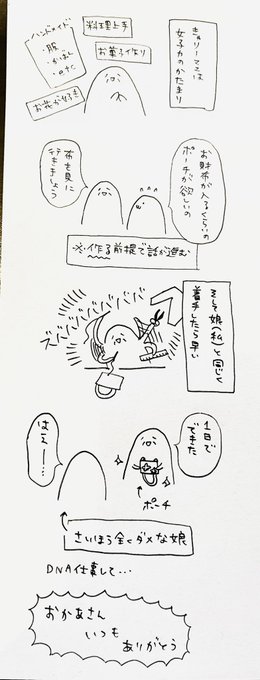 きゅりーママは
女子力のかたまり
料理上手
お菓子作り
ハンドメイド
・服
・かばん
・etc
お花が好き
お財布が入るくらいの
ポーチが欲しいの
布を見に
行きましょう
※作る前提で話が進む
そして娘(私)と同じく
着手したら早い
ズババババババババ
1日で
できた
ポーチ
はえー…
さいほう全くダメな娘
DNA仕事して…
おかあさん
いつも
ありがとう